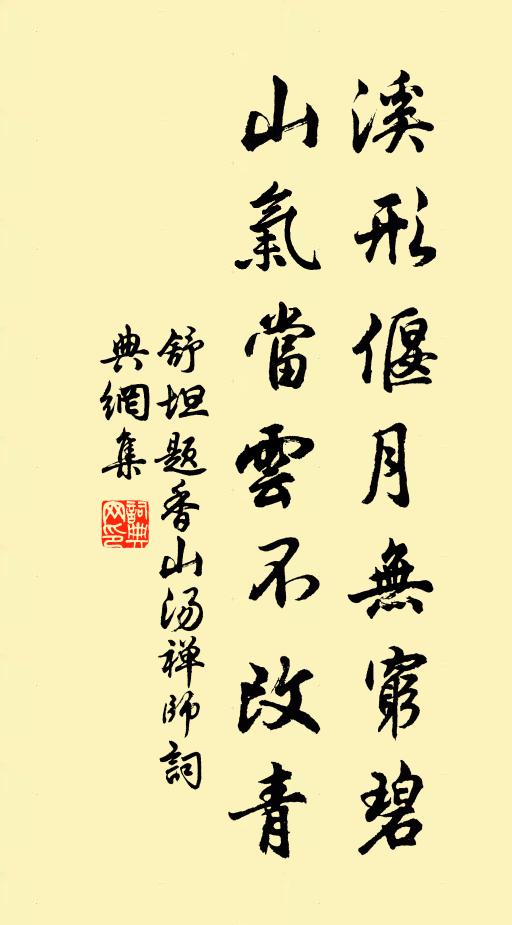 溪形偃月無窮碧
山氣當雲不改青
舒坦题香山汤禅師詞
典網集
詞典
网印